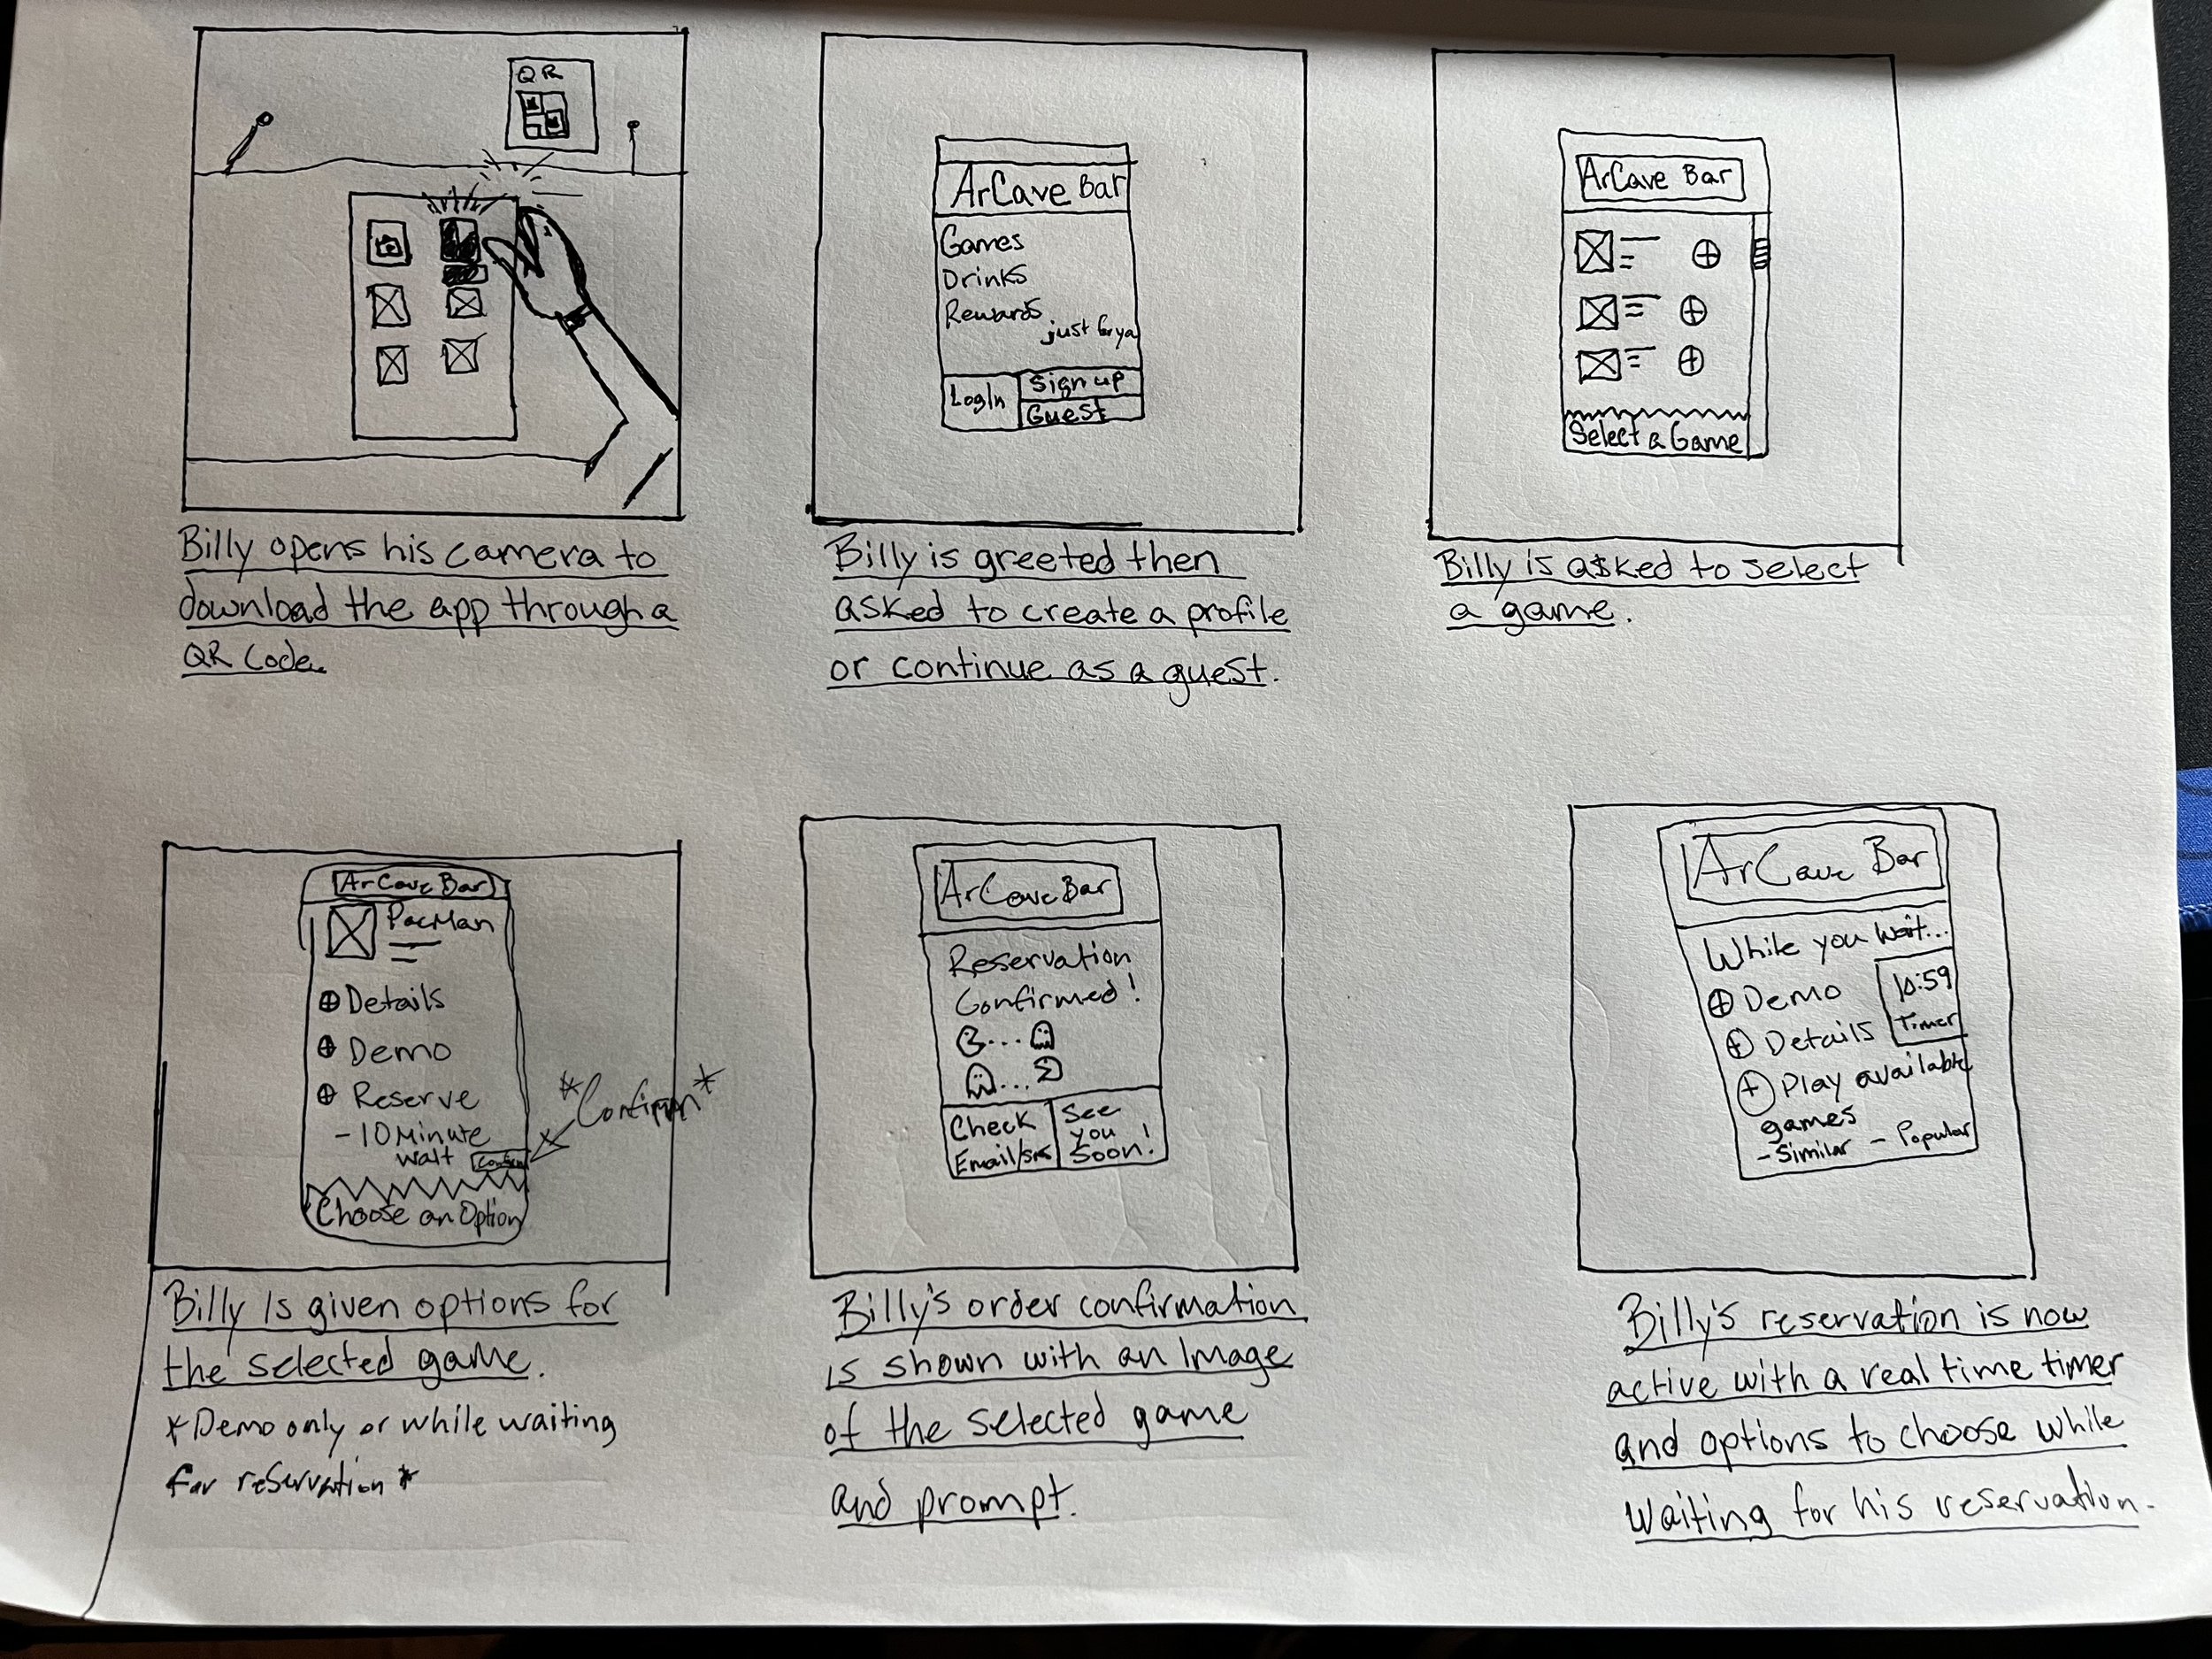 QR
Billy opens his camera to
download the app through a
QR Code.
ArCave Bar
Games
Drinks
Rewards
just for ya
LogIn
Sign up
Guest
Billy is greeted then
asked to create a profile
or continue as a guest.
ArCave Bar
Select a Game
Billy is asked to select
a game.
ArCave Bar
PacMan
Details
Demo
Reserve
- 10 Minute
wait
Confirm
*Confirm*
Choose an Option
Billy is given options for
the selected game.
*Demo only or while waiting
for reservation*
ArCave Bar
Reservation
Confirmed!
Check
Email/sms
See
you
Soon!
Billy's order confirmation
is shown with an Image
of the selected game
and prompt.
ArCave Bar
While you wait...
Demo
10:59
Timer
Details
Play available
games
- Similar - Popular
Billy's reservation is now
active with a real time timer
and options to choose while
waiting for his reservation.